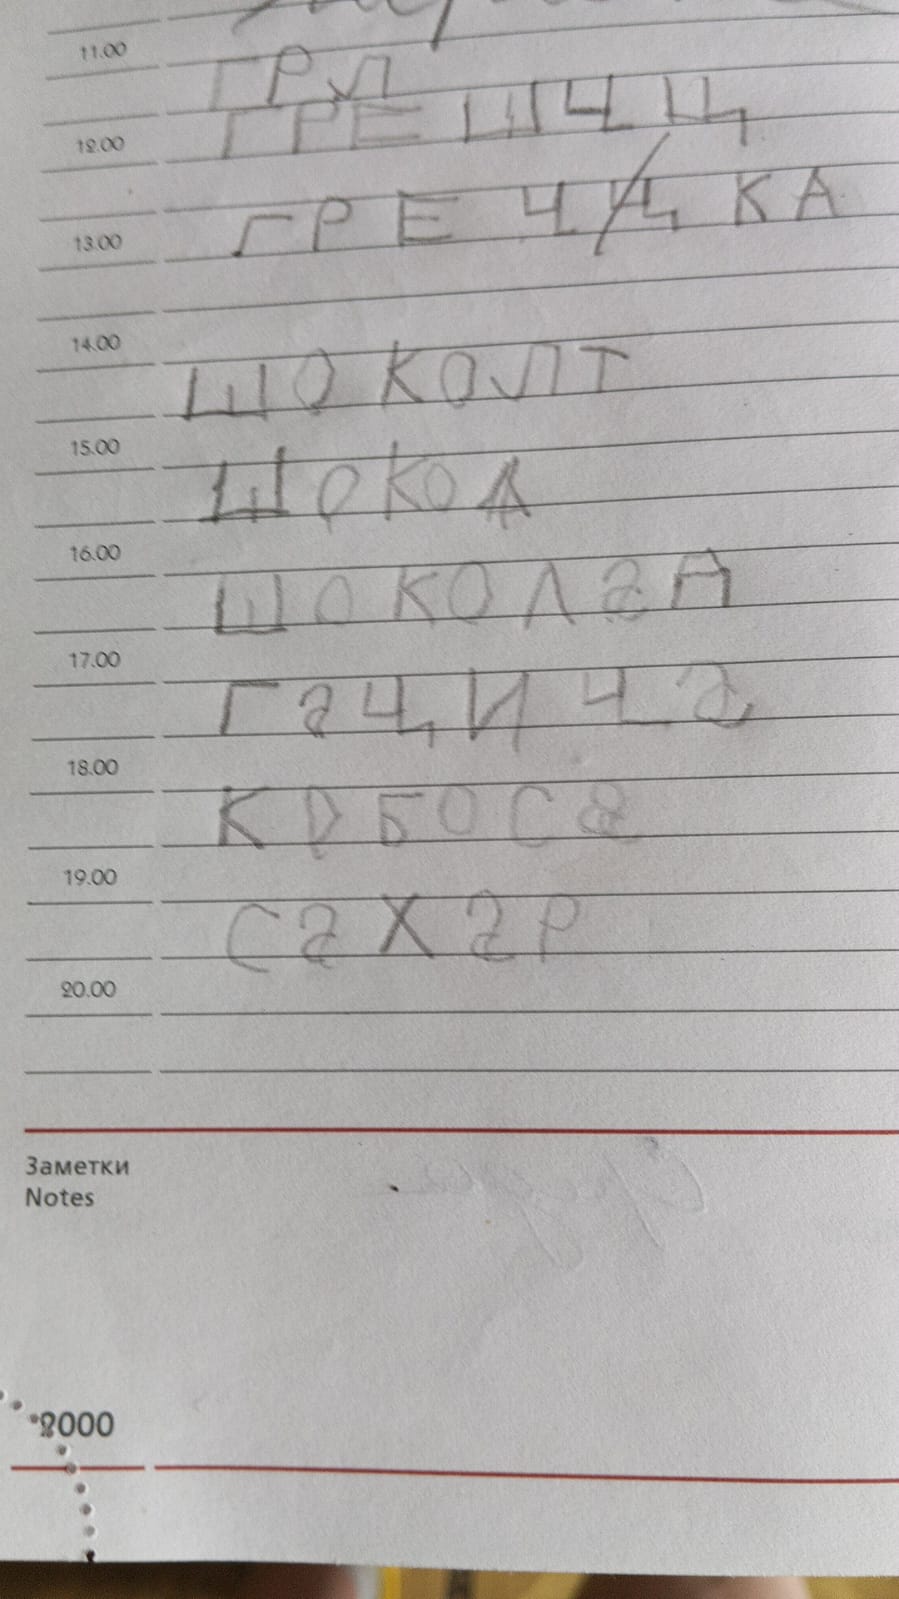 11.00
ГРЛ
ГРЕШЧЦ
12.00
ГРЕЧКА
13.00
14.00
ШОКОЛТ
15.00
ШОКОЛ
16.00
ШОКОЛаД
17.00
ГаЦИЧа
18.00
КРБОСа
19.00
СаХаР
20.00
Заметки
Notes
2000